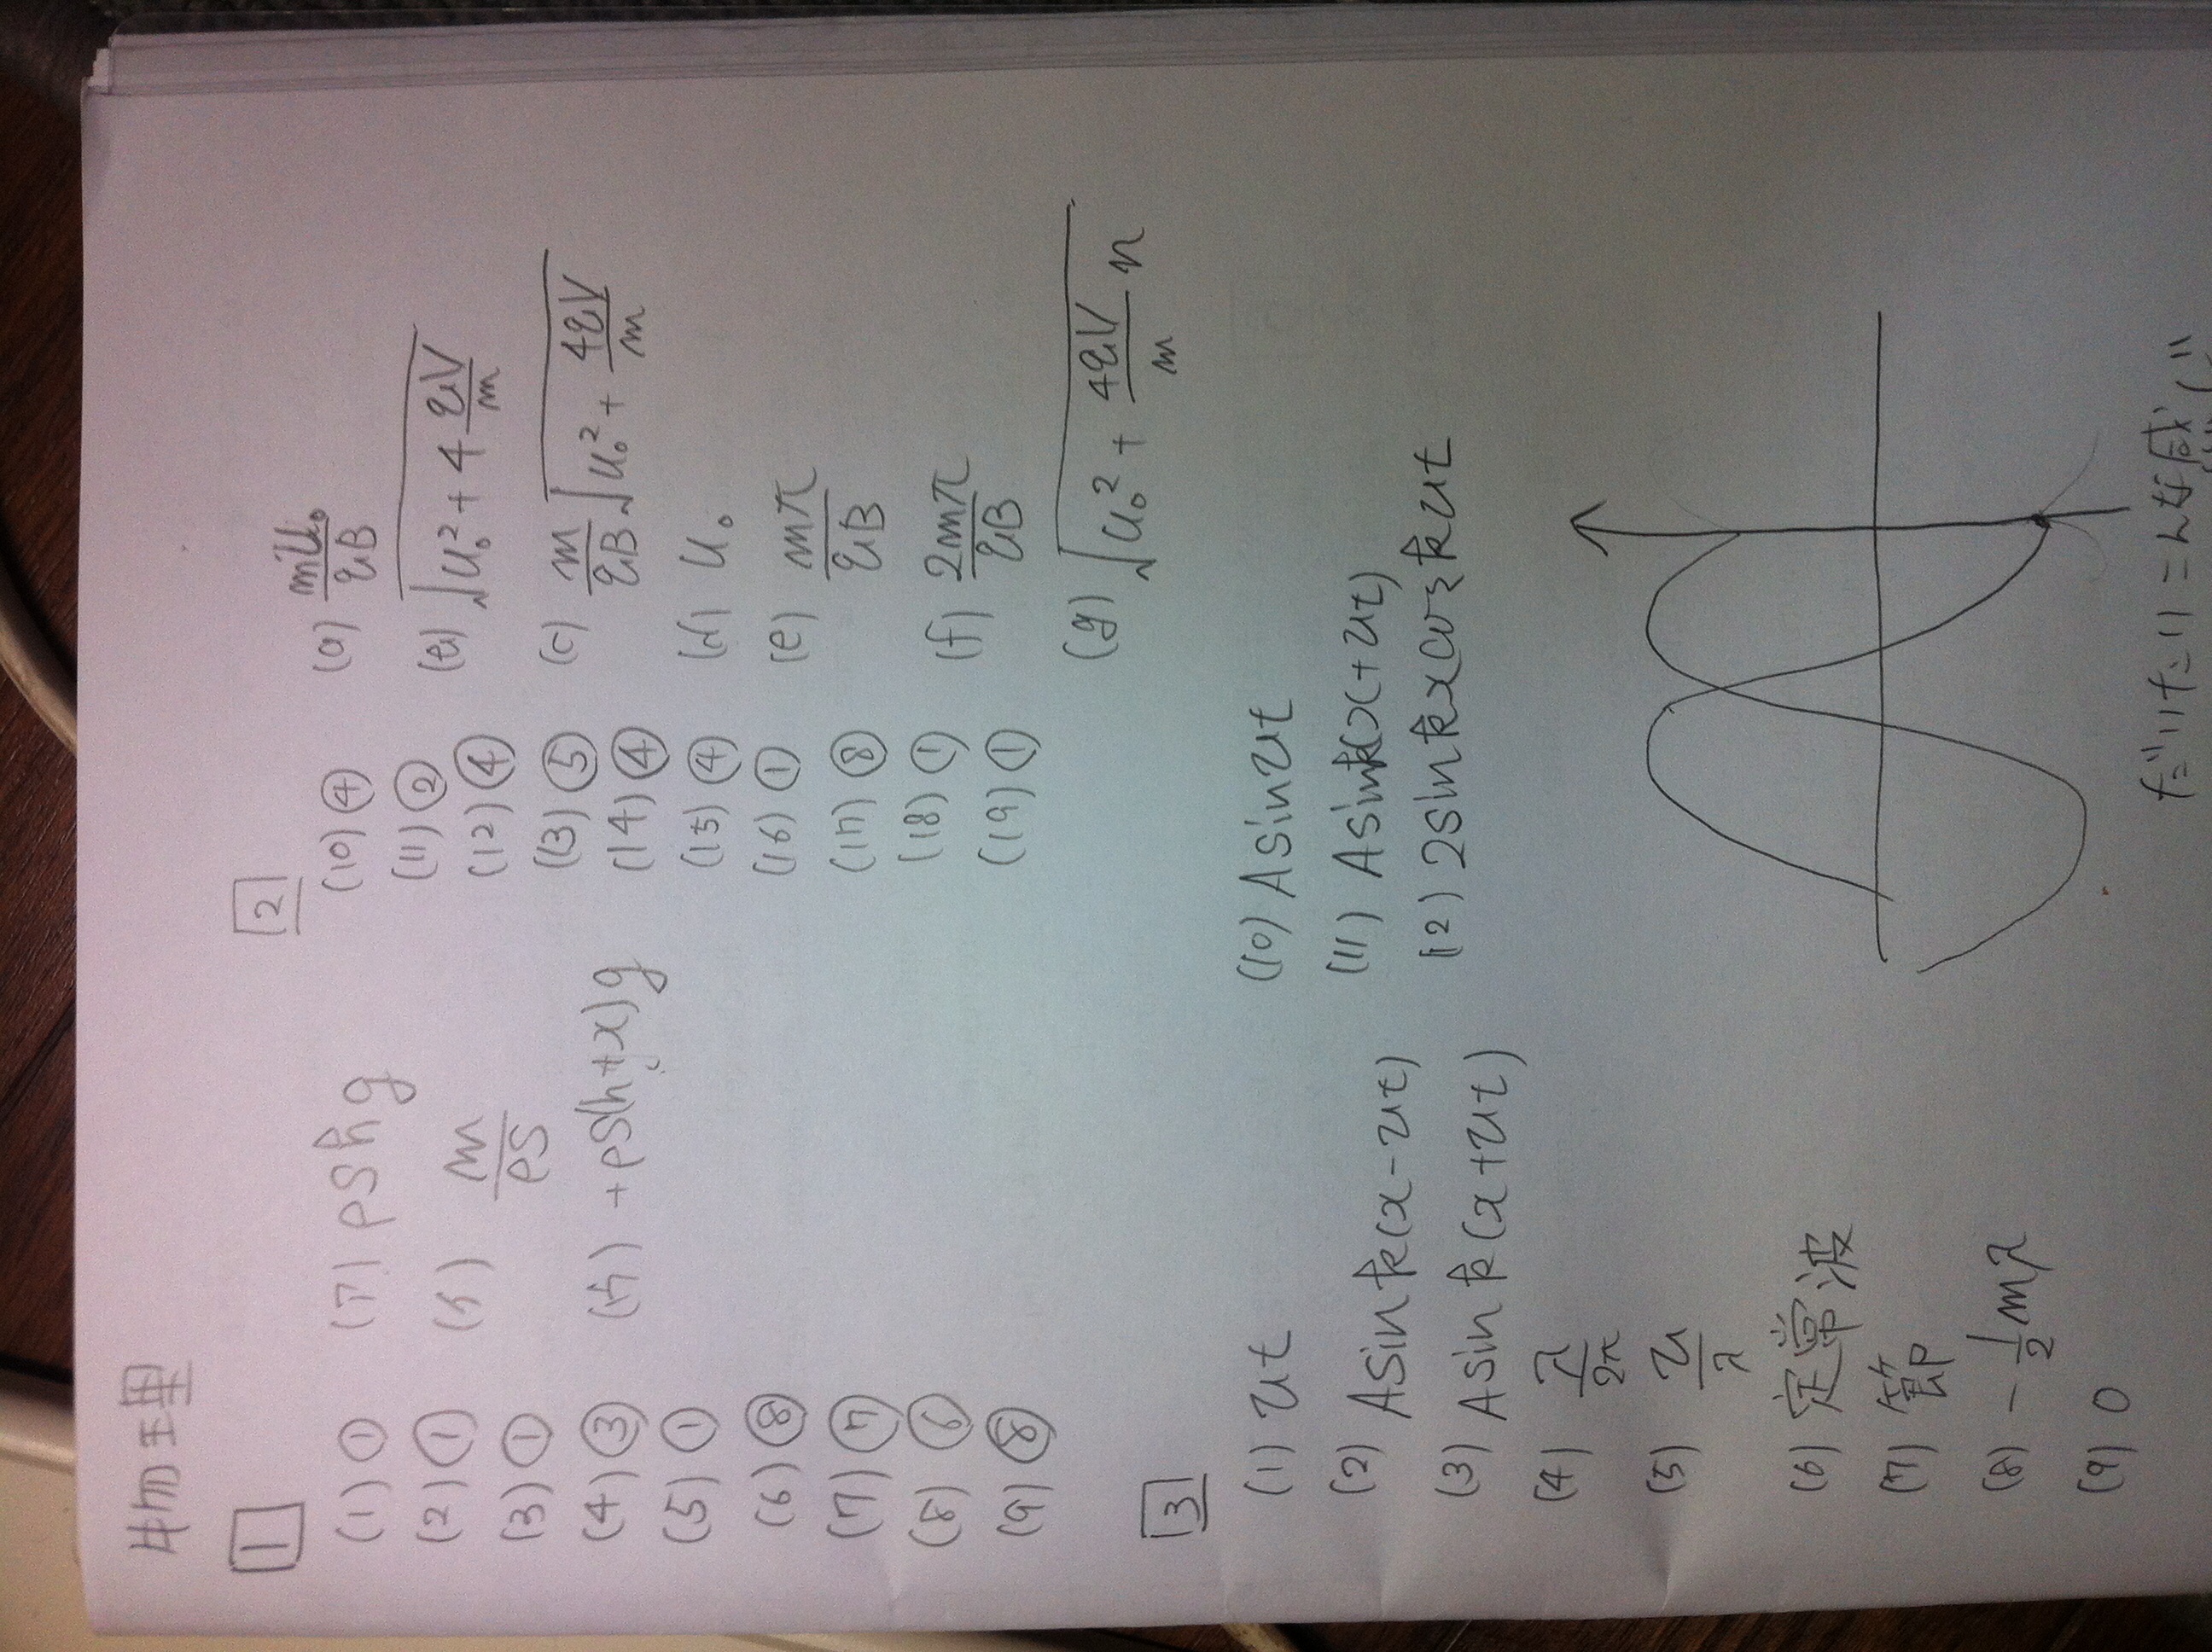 物理
1
(1) ①
(2) ①
(3) ①
(4) ③
(5) ①
(6) ⑧
(7) ⑦
(8) ⑥
(9) ⑧
(ア) ρShg
(イ) m/ρS
(ウ) +ρS(h+x)g
2
(10) ④
(11) ②
(12) ④
(13) ⑤
(14) ④
(15) ④
(16) ①
(17) ⑧
(18) ①
(19) ①
(a) mv₀/qB
(b) √(v₀²+4qV/m)
(c) m/qB √(v₀²+4qV/m)
(d) v₀
(e) mπ/qB
(f) 2mπ/qB
(g) √(v₀²+4qV/m n)
3
(1) vt
(2) A sin k(x-vt)
(3) A sin k(x+vt)
(4) λ/2π
(5) v/λ
(6) 定常波
(7) 節
(8) -1/2 mλ
(9) 0
(10) A sin vt
(11) A sin k(x+vt)
(12) 2 sin kx cos kvt
だいたいこんな感じ